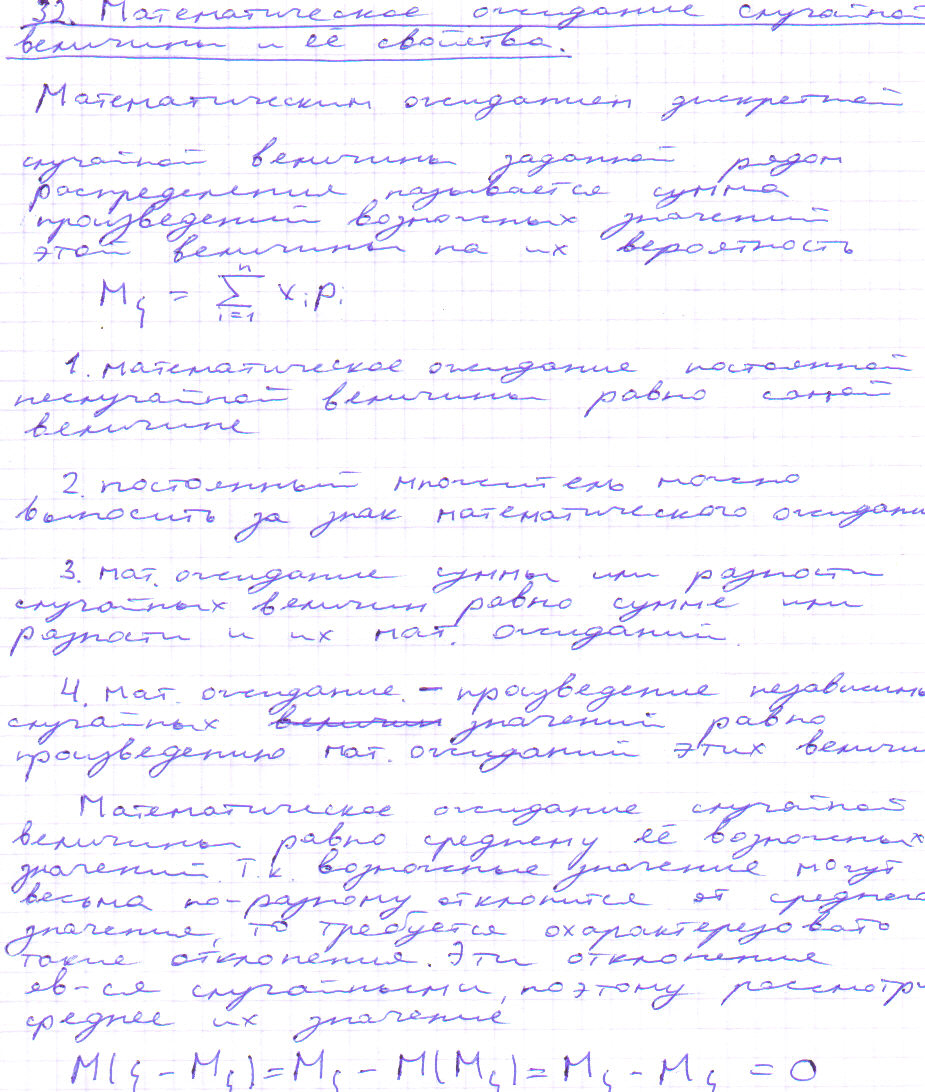 32. Математическое ожидание случайной
величины и её свойства.
Математическим ожиданием дискретной
случайной величины заданной рядом
распределения называется сумма
произведений возможных значений
этой величины на их вероятность
Mξ = ∑ⁿᵢ₌₁ xᵢpᵢ
1. математическое ожидание постоянной
неслучайной величины равно самой
величине
2. постоянный множитель можно
выносить за знак математического ожидани
3. мат. ожидание суммы или разности
случайных величин равно сумме или
разности и их мат. ожиданий
4. мат. ожидание - произведение независимы
случайных величин значений равно
произведению мат. ожиданий этих величи
Математическое ожидание случайной
величины равно среднему её возможных
значений. Т.к. возможные значение могут
весьма по-разному отклонится от среднего
значения, то требуется охарактерезовать
такие отклонения. Эти отклонение
яв-ся случайными, поэтому рассмотри
среднее их значение
M(ξ - Mξ) = Mξ - M(Mξ) = Mξ - Mξ = 0